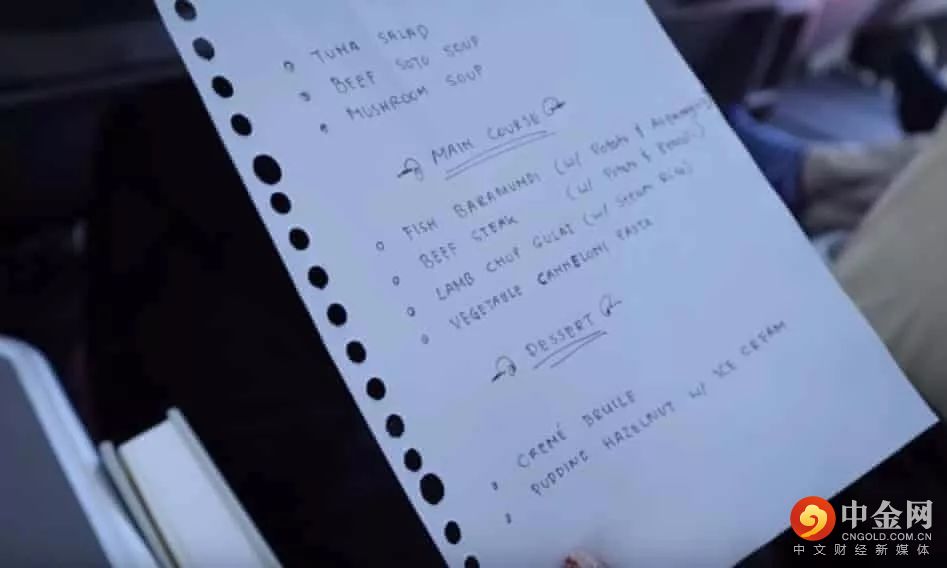 TUNA SALAD
BEEF SOTO SOUP
MUSHROOM SOUP
MAIN COURSE
FISH BARAMUNDI (w/ Potato & Asparagus)
BEEF STEAK (w/ Potato &
LAMB CHOP GULAI (w/ Steam Rice)
VEGETABLE CANNELONI PASTA
DESSERT
CREMÉ BRULE
PUDDING HAZELNUT w/ ICE CREAM
中金网
CNGOLD.COM.CN
中文财经新媒体